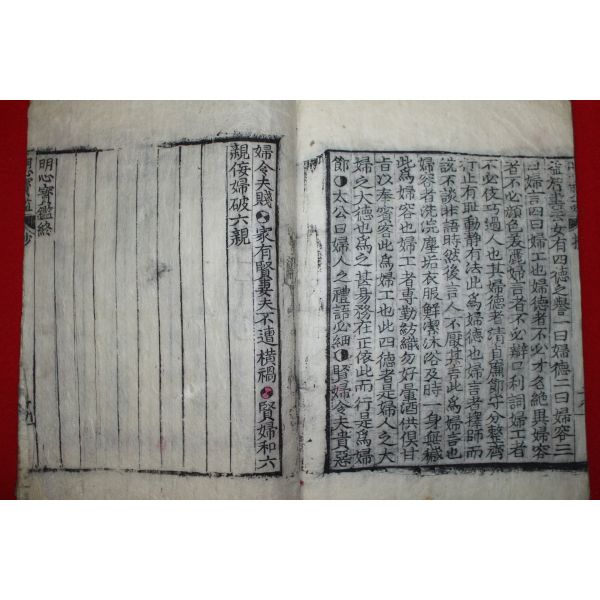 益智書云女有四德之譽一曰婦德二曰婦容三
曰婦言四曰婦工也婦德者不必才名絶異婦容
者不必顔色美麗婦言者不必辯口利詞婦工者
不必伎巧過人也其婦德者清貞廉節守分整齊
行止有恥動静有法此爲婦德也婦言者擇師而
說不談非語時然後言人不厭其言此爲婦言也
婦容者洗浣塵垢衣服鮮潔沐浴及時一身無穢
此爲婦容也婦工者專勤紡織勿好葷酒供俱甘
旨以奉賓客此爲婦工也此四德者是婦人之大
婦之大德也爲之甚易務在正依此而行是爲婦
節太公曰婦人之禮語必細賢婦令夫貴惡
婦令夫賤家有賢妻夫不遭橫禍賢婦和六
親侫婦破六親
明心寶鑑終
明心寶鑑抄